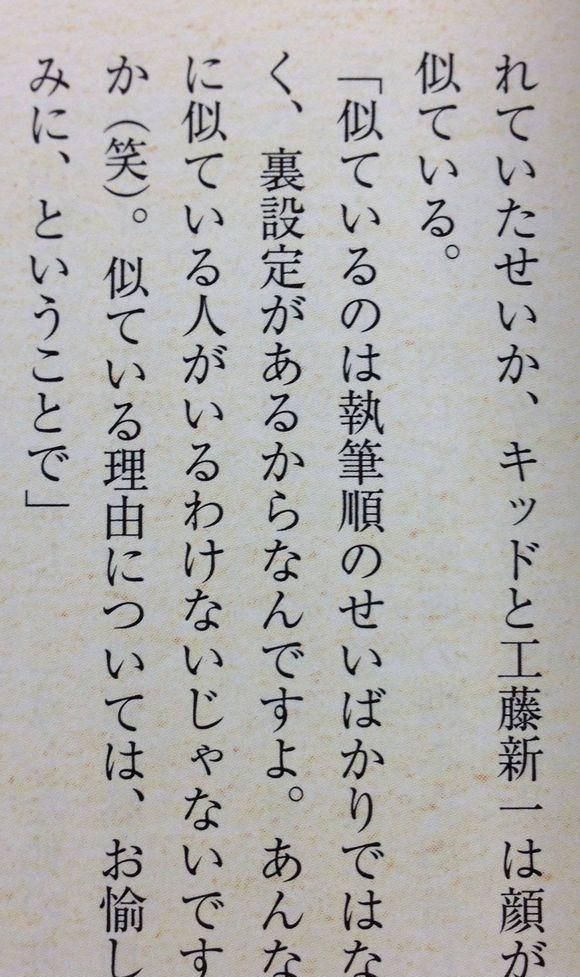 れていたせいか、キッドと工藤新一は顔が
似ている。
「似ているのは執筆順のせいばかりではな
く、裏設定があるからなんですよ。あんな
に似ている人がいるわけないじゃないです
か（笑）。似ている理由については、お愉し
みに、ということで」